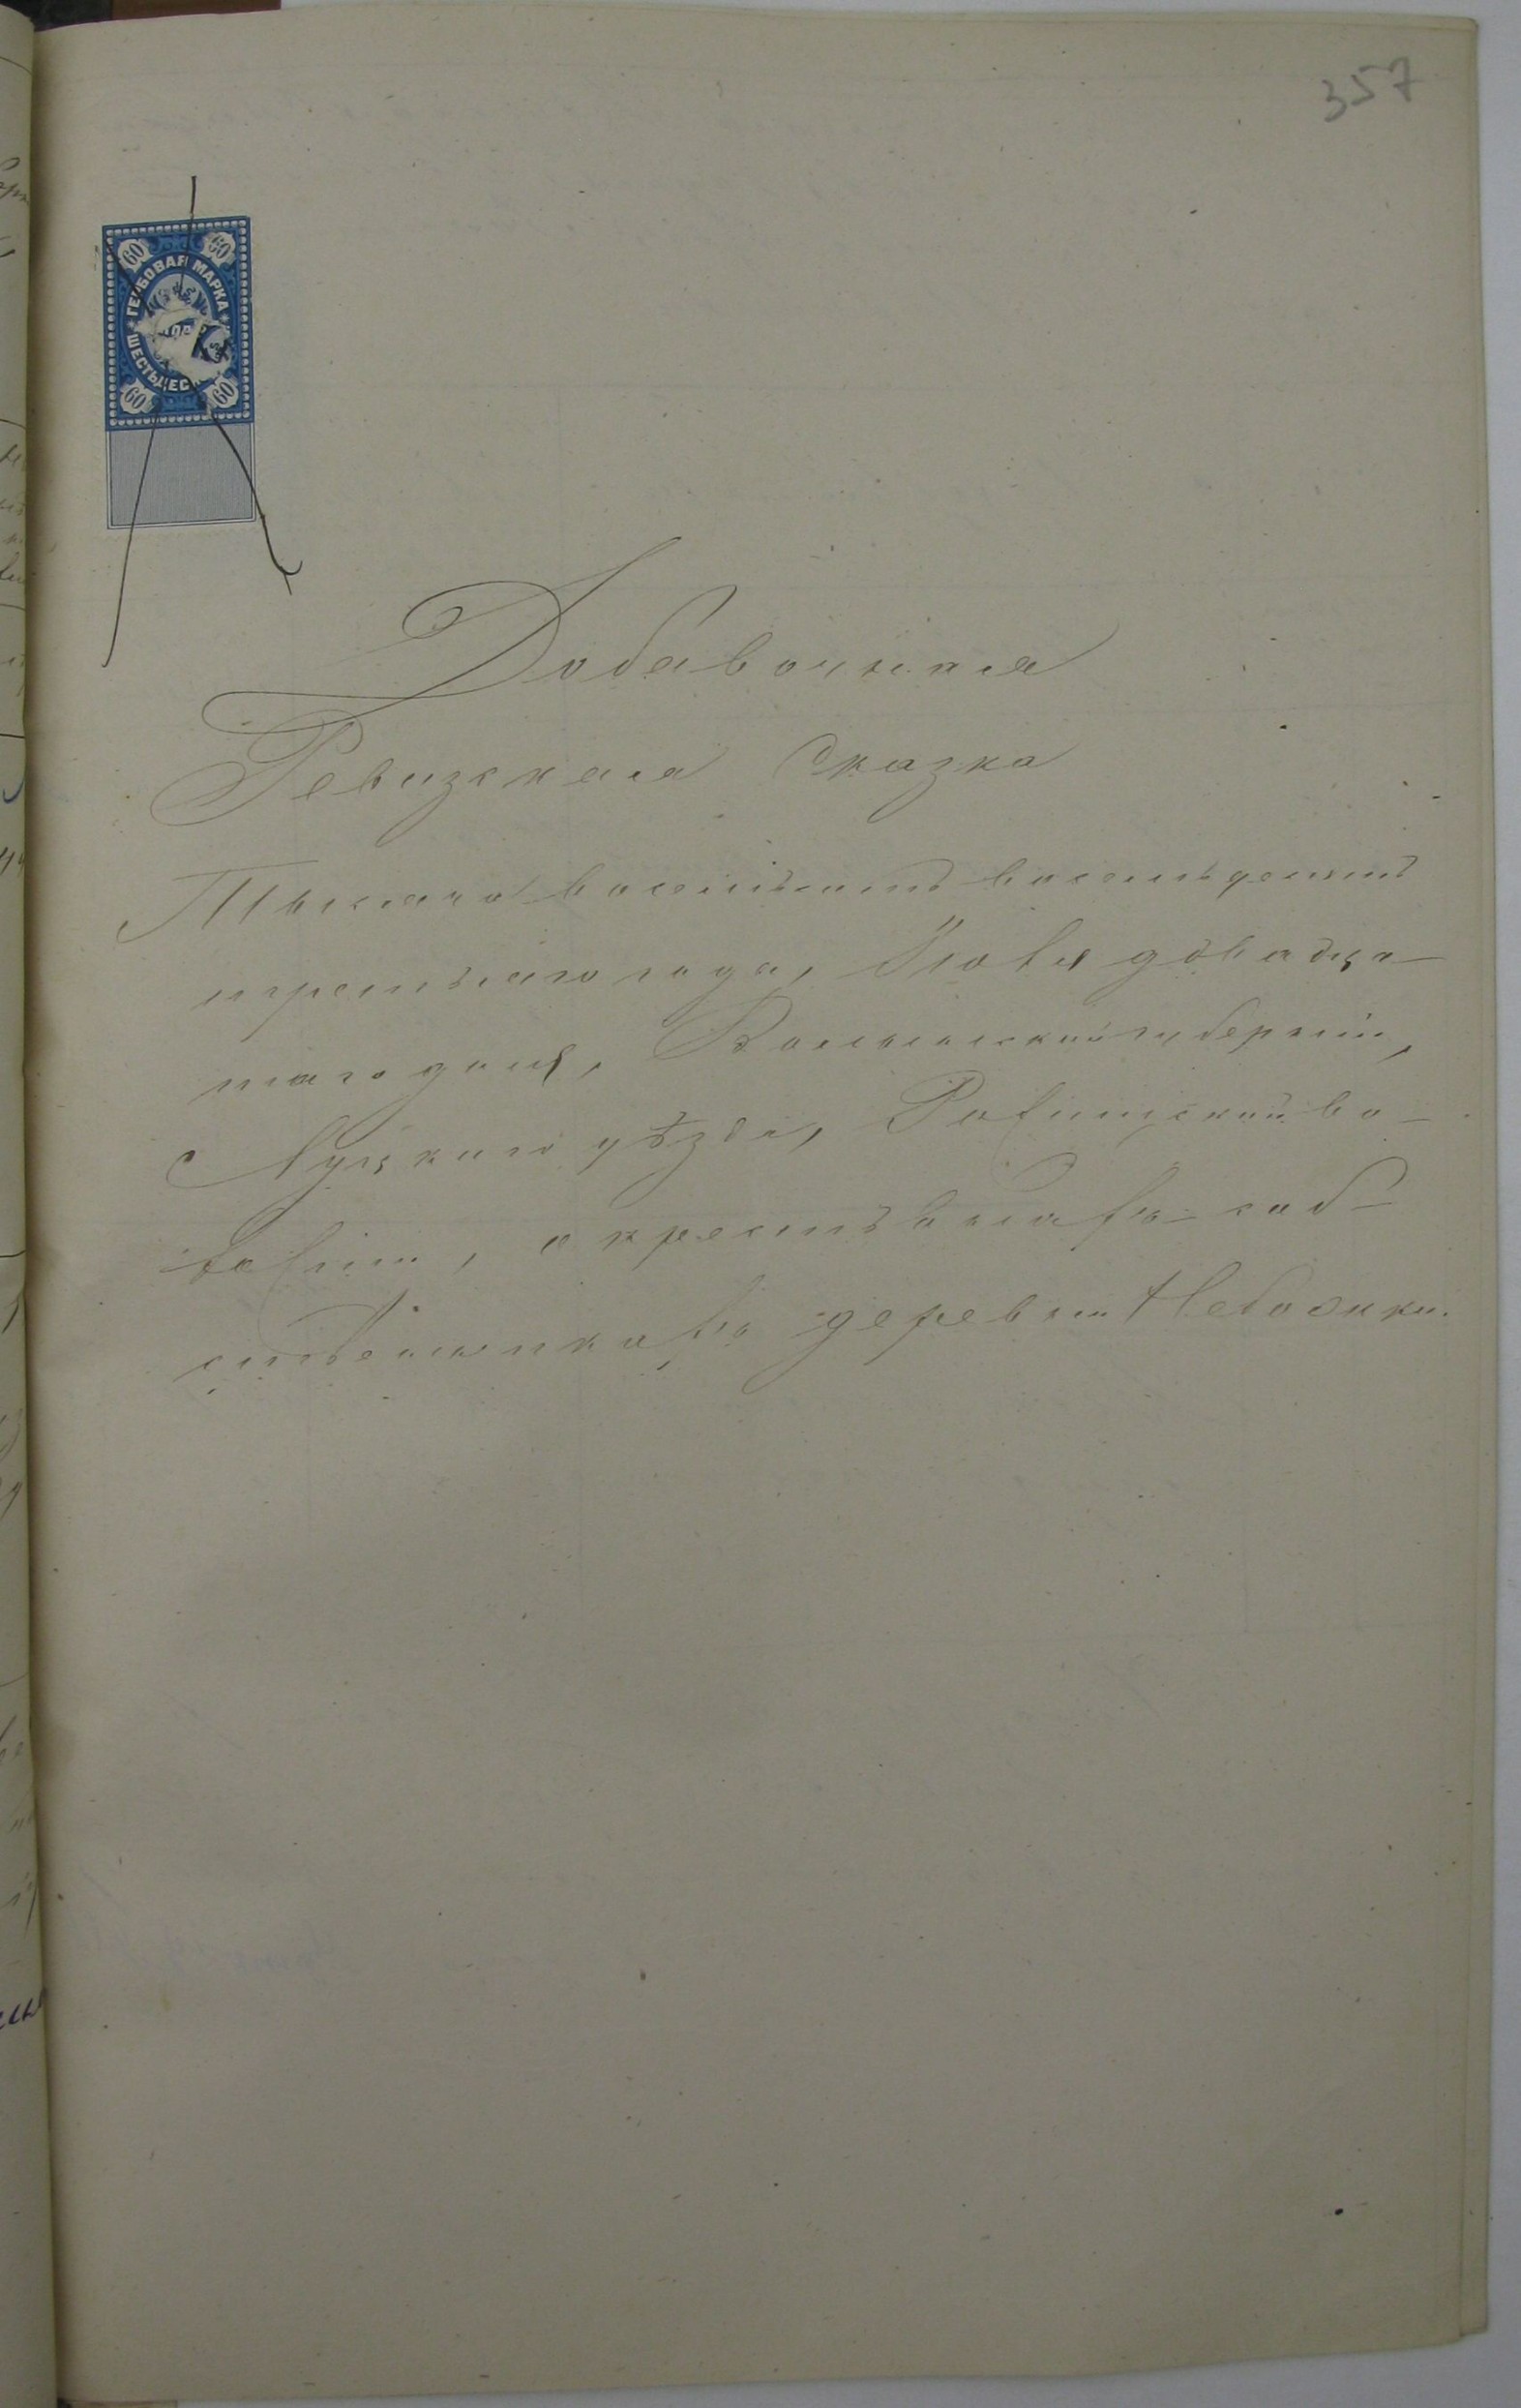 357
60 60
ГЕРБОВАЯ МАРКА
ШЕСТЬДЕС
60 60
Добавочная
Ревизская Сказка
Тысяча восемьсотъ восемьдесятъ
третьяго года, Іюля двадца-
таго дня, Волынской губерніи,
Луцкаго уѣзда, Рожищской во-
лости, о крестьянахъ-соб-
ственникахъ деревни Небожки.